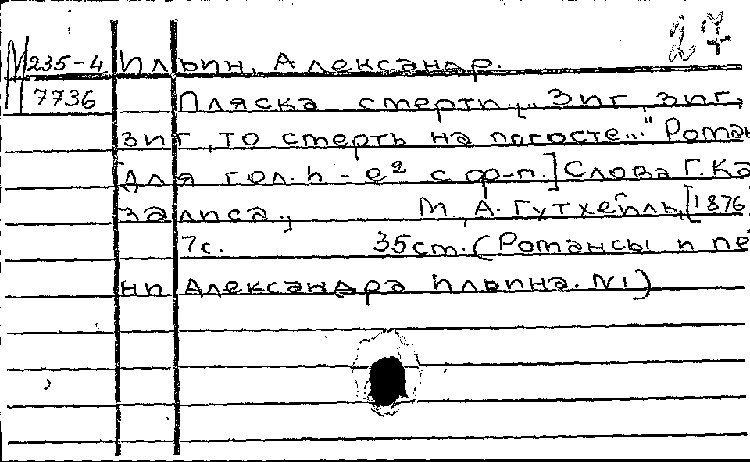 27
М 235-4 Ильин, Александр.
7736 Пляска смерти [„Зиг, зиг,
зиг, то смерть на погосте..." Роман
для гол. h - e² с ф-п.] Слова Г. Ка
залиса., М., А. Гутхейль, [1876
7с. 35см. (Романсы и пе
ни Александра Ильина. №1)